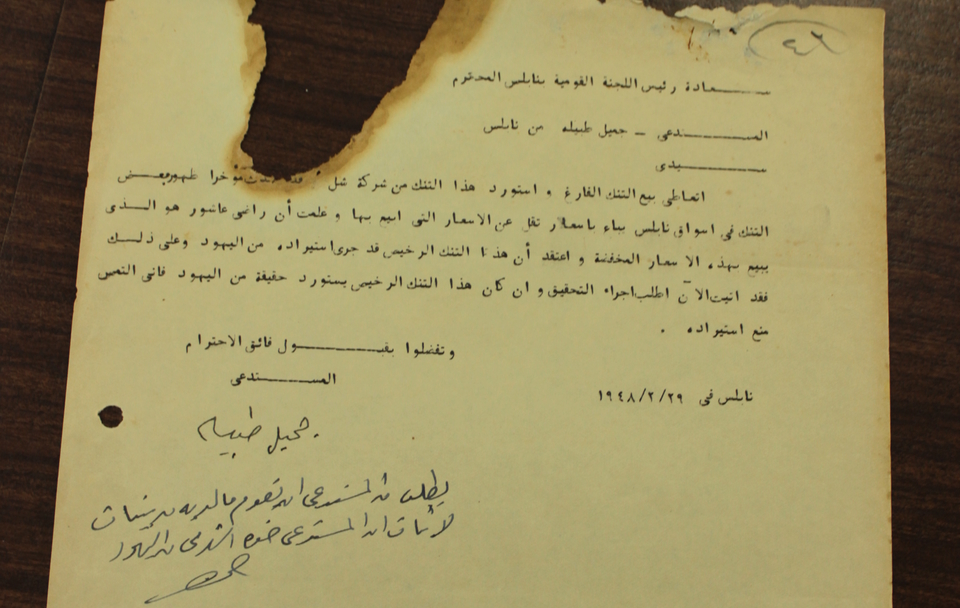 ٤٦
سعادة رئيس اللجنة القومية بنابلس المحترم
المستدعي - جميل طبيله من نابلس
سيدي
اتعاطى بيع التنك الفارغ و استورد هذا التنك من شركة شل مؤخرا ظهور بعض
التنك في اسواق نابلس يباع باسعار تقل عن الاسعار التي ابيع بها و علمت أن راضي عاشور هو الذى
يبيع بهذه الاسعار المخفضة و اعتقد أن هذا التنك الرخيص قد جرى استيراده من اليهود وعلى ذلك
فقد اتيت الآن اطلب اجراء التحقيق و ان كان هذا التنك الرخيص يستورد حقيقة من اليهود فاني التمس
منع استيراده .
و تفضلوا بقبول فائق الاحترام
المستدعي
نابلس في ٢٩/٢/١٩٤٨
جميل طبيله
يطلب من المستدعي ان يقدم ما لديه من بينات
لاثبات ان المستدعى ضده اشترى من اليهود